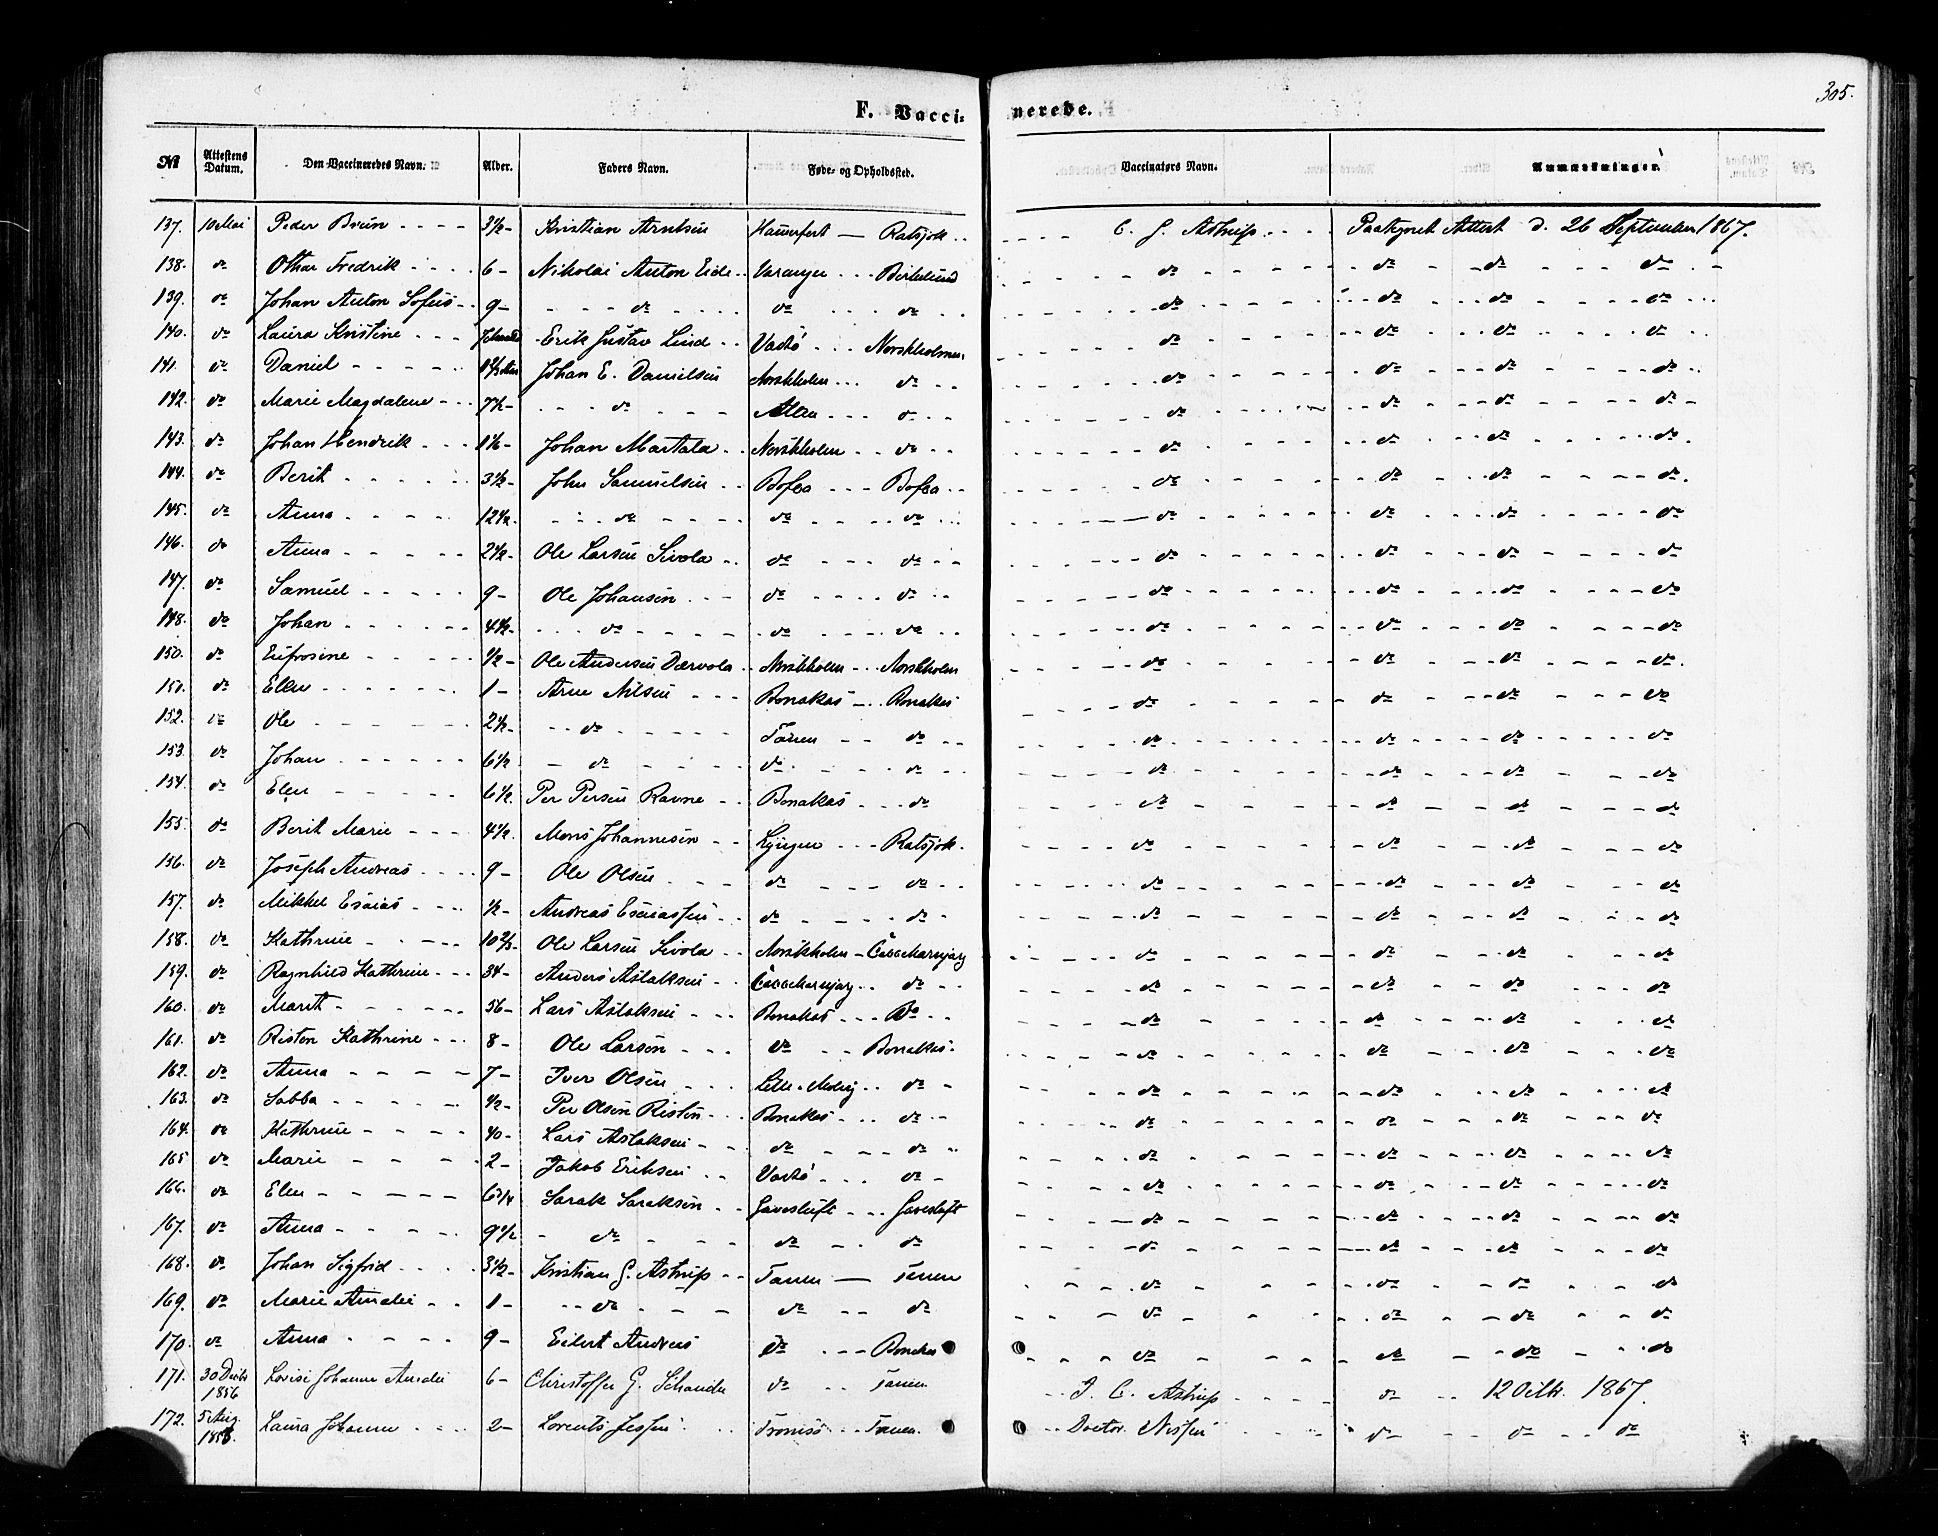 305.
F. Vaccinerede.
№ Attestens Datum. Den Vaccineredes Navn. Alder. Faders Navn. Føde- og Opholdssted. Vaccinatørs Navn. Anmærkninger.
137. 10 Mai Peder Brun - - - - 3½ - Kristian Arntsen Hammerfest — Ratsjok - - C. G. Astrup - - - Paategnet Attest d. 26 September 1867.
138. do Othar Fredrik - - - - 6 - Nikolai Anton Eide - - Varanger - - - Birkelund do do do do
139. do Johan Anton Sofus - - 9 - do do do do do do do
140. do Laura Kristine - - - Erik Gustav Lind - - Vadsö - - - Norskholmen do do do do
141. do Daniel - - - - - Johan E. Danielsen Norskholm - - - do do do do do
142. do Marie Magdalene - - 7½ - do Alten - - - do do do do do
143. do Johan Hendrik - - - Johan Martala - - Norskholm - - do do do do do
144. do Berit - - - - - 3½ - John Samuelsen - - Bofca - - - Bofca - - do do do do
145. do Anna - - - - - 12½ - do do do do do do do
146. do Anna - - - - - 2½ - Ole Larsen Sivola - - do do do do do do
147. do Samuel - - - - - 9 - Ole Johansen - - - do do do do do do
148. do Johan - - - - - 4½ - do do do do do do do
150. do Eufrosine - - - - ½ - Ole Andersen Dærvola - - Norskholm - - Norskholm do do do do
151. do Ellen - - - - - 1 - Arne Nilsen - - - Bonakas - - - Bonakas do do do do
152. do Ole - - - - - 2½ - do Tanen - - do do do do do
153. do Johan - - - - - 6½ do do do do do do do
154. do Elen - - - - - 6½ Per Persen Ravne - - Bonakas - - - do do do do do
155. do Berit Marie - - - 4½ Mons Johannesen - - Lyngen - - - Ratsjok - do do do do
156. do Joseph Andreas - - - 9 - Ole Olsen - - - do do do do do do
157. do Mikkel Esaias - - - ½ - Andreas Esaiassen - - do do do do do do
158. do Kathrine - - - - 10⅔ - Ole Larsen Sivola - - Norskholm - do do do do
159. do Ragnhild Kathrine - - - 34 - Anders Aslaksen - - do do do do do
160. do Marit - - - - - 56 - Lars Aslaksen - - - Bonakas - - - Do - - do do do do
161. do Risten Kathrine - - - 8 - Ole Larsen - - - do - - Bonakas - do do do do
162. do Anna - - - - - 7 - Iver Olsen - - - do do do do do
163. do Sabba - - - - - ½ - Per Olsen Risten - - - Bonakas - - - do do do do do
164. do Kathrine - - - - 40 - Lars Aslaksen - - do do do do do do
165 do Marie - - - - 2 - Jakob Eriksen - - Vadsö - - - do do do do do
166. do Elen - - - - - 6¾ Sarak Saraksen - - Gavesluft - - - Gavesluft do do do do
167. do Anna - - - - - 9½ do do do do do do do
168. do Johan Sigfrid - - - - 3½ - Kristian G. Astrup - - Tanen — Tanen do do do do
169. do Marie Amalie - - 1 - do do do do do do do
170. do Anna - - - - 9 - Eilert Andreas do - - - Bonakas do do do do
171. 30 Decbr 1856 Lovise Johanne Amalie 6 - Christoffer G. Schanche do - - Tanen J. C. Astrup - - - - do - - 12 Octbr. 1867.
172. 5 Aug. Laura Johanne - - - - 2 - Lorents Jessen - - Tromsö - - Tanen. Doctor Nissen do do do